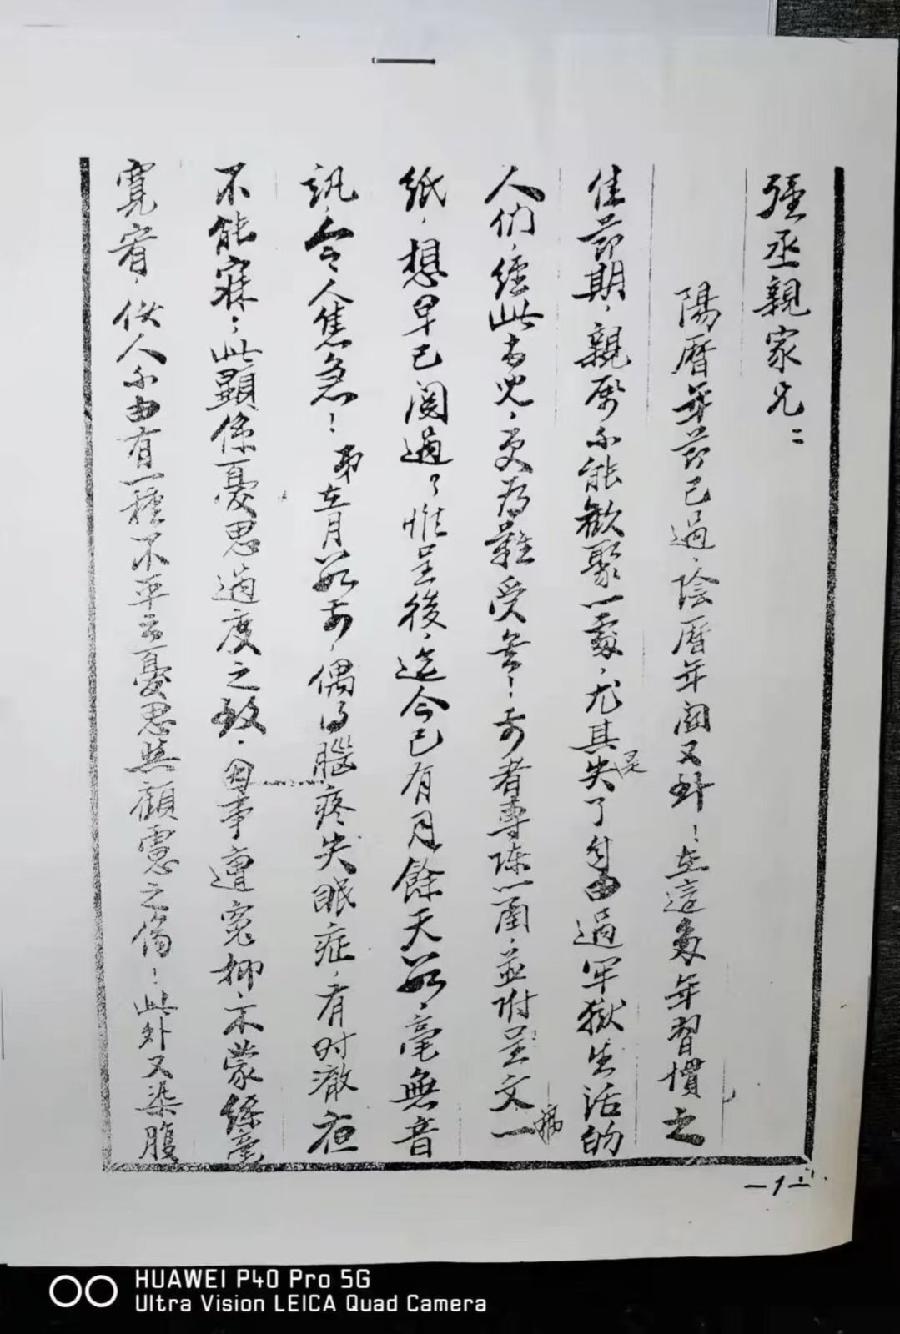 強丞親家兄:
陽曆年節已過，陰曆年関又到！在這數年習慣之
佳節期，親友不能歡聚一處，尤其失了自由過牢獄生活的
人們，經此，更为難受矣！前者專陳一函，並附呈文一
紙，想早已閱過了，惟呈後，迄今已有月餘天数，毫無音
訊，令人焦急！弟在月前，偶得腦疼失眠症，有时澈夜
不能寐；此顯係憂思過度之致，因事遭冤抑，不蒙絲毫
寬宥，使人不由有一種不平之憂思与顧慮之傷！此外又染腹
—1—
HUAWEI P40 Pro 5G
Ultra Vision LEICA Quad Camera